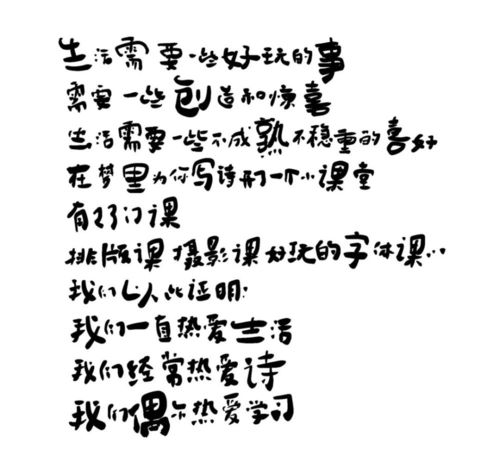 生活需要一些好玩的事
需要一些创造和惊喜
生活需要一些不成熟不稳重的喜好
在梦里为你写诗开一个小课堂
有23门课
排版课 摄影课 好玩的字体课...
我们以此证明:
我们一直热爱生活
我们经常热爱诗
我们偶尔热爱学习